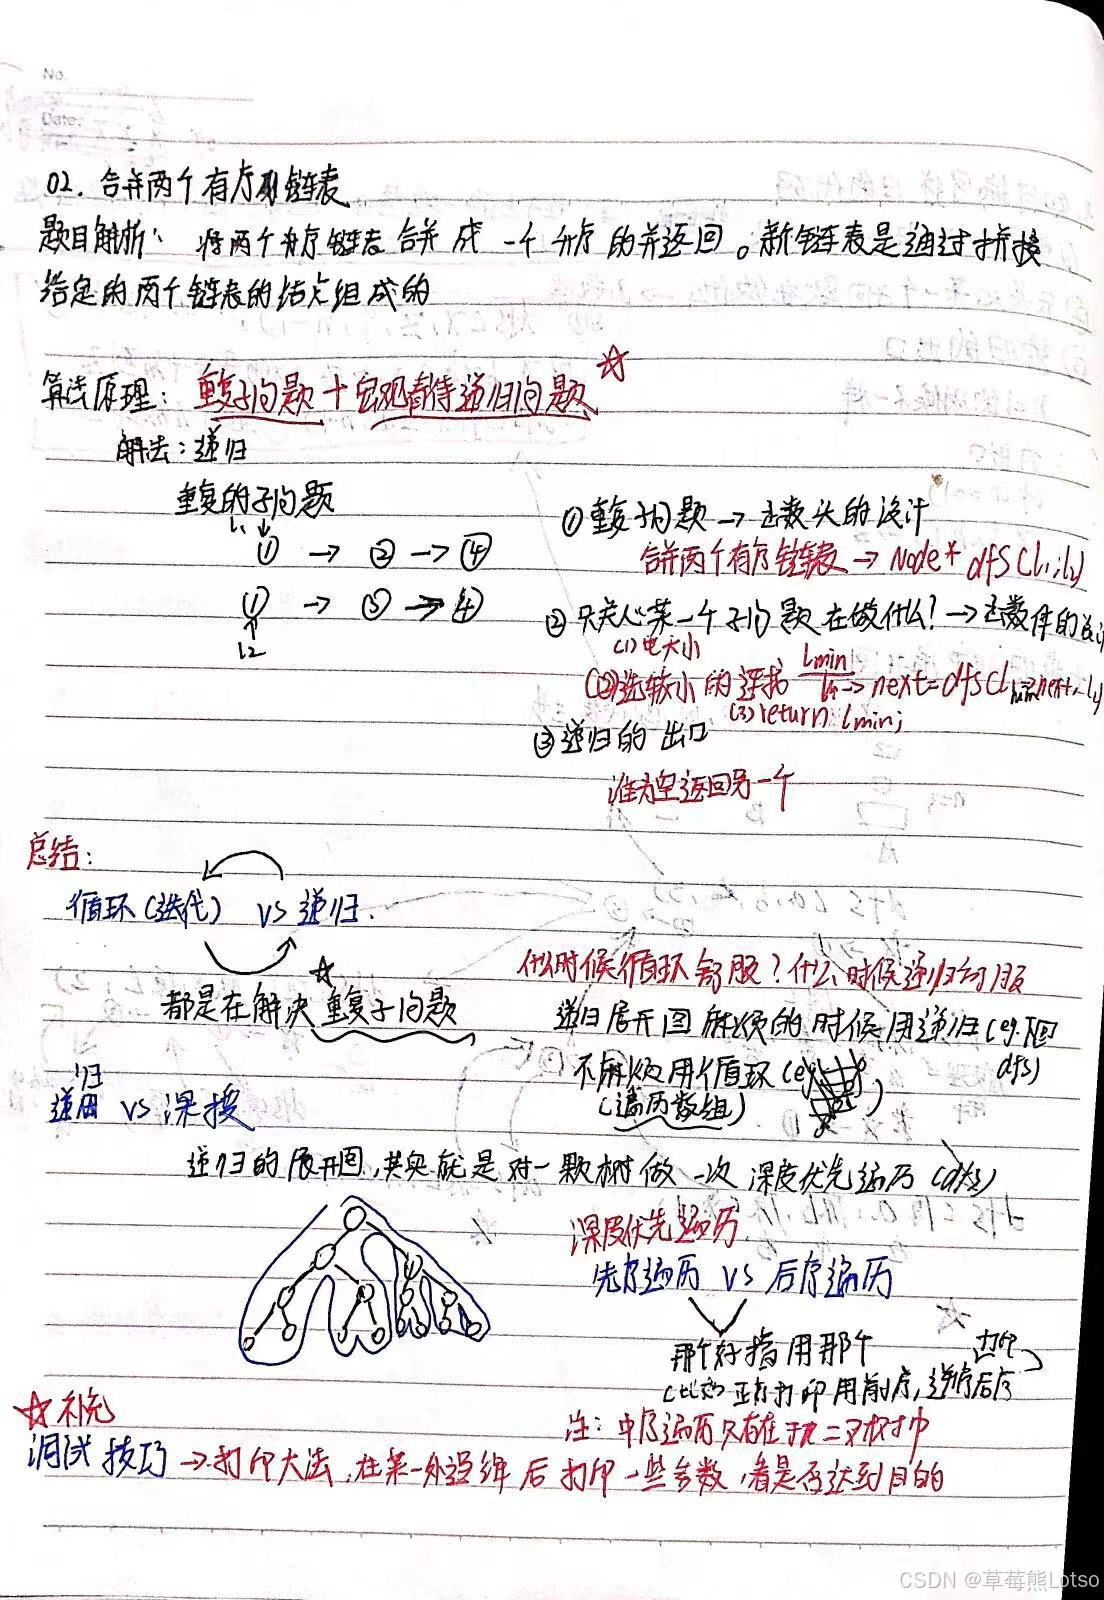 No.
Date.
02. 合并两个有序链表
题目解析: 将两个升序链表合并成一个升序的并返回。新链表是通过拼接
给定的两个链表的结点组成的
算法原理: 重复子问题 + 宏观看待递归问题 ☆
解法: 递归
重复的子问题
L1
① → ② → ④
① → ③ → ④
L2
① 重复子问题 → 函数头的设计
合并两个有序链表 → Node* dfs(l1, l2)
② 只关心某一个子问题在做什么? → 函数体的设计
(1) 比大小
(2) 选较小的 lmin
→ next = dfs(l next, l2)
(3) return lmin;
③ 递归的出口
谁为空返回另一个
总结:
循环(迭代) vs 递归.
都是在解决重复子问题
什么时候循环舒服? 什么时候递归舒服
递归展开图麻烦的时候用递归(eg.
dfs)
不麻烦用循环(eg
(遍历数组)
递归 vs 深搜
递归的展开图,其实就是对一颗树做一次深度优先遍历(dfs)
深度优先遍历.
先序遍历 vs 后序遍历
那个好搞用那个
(比如正序打印用前序,逆序打印后序
注: 中序遍历只存在于二叉树中
☆补充
调试技巧 → 打印大法,在某一处逻辑后打印一些参数,看是否达到目的
CSDN @草莓熊Lotso